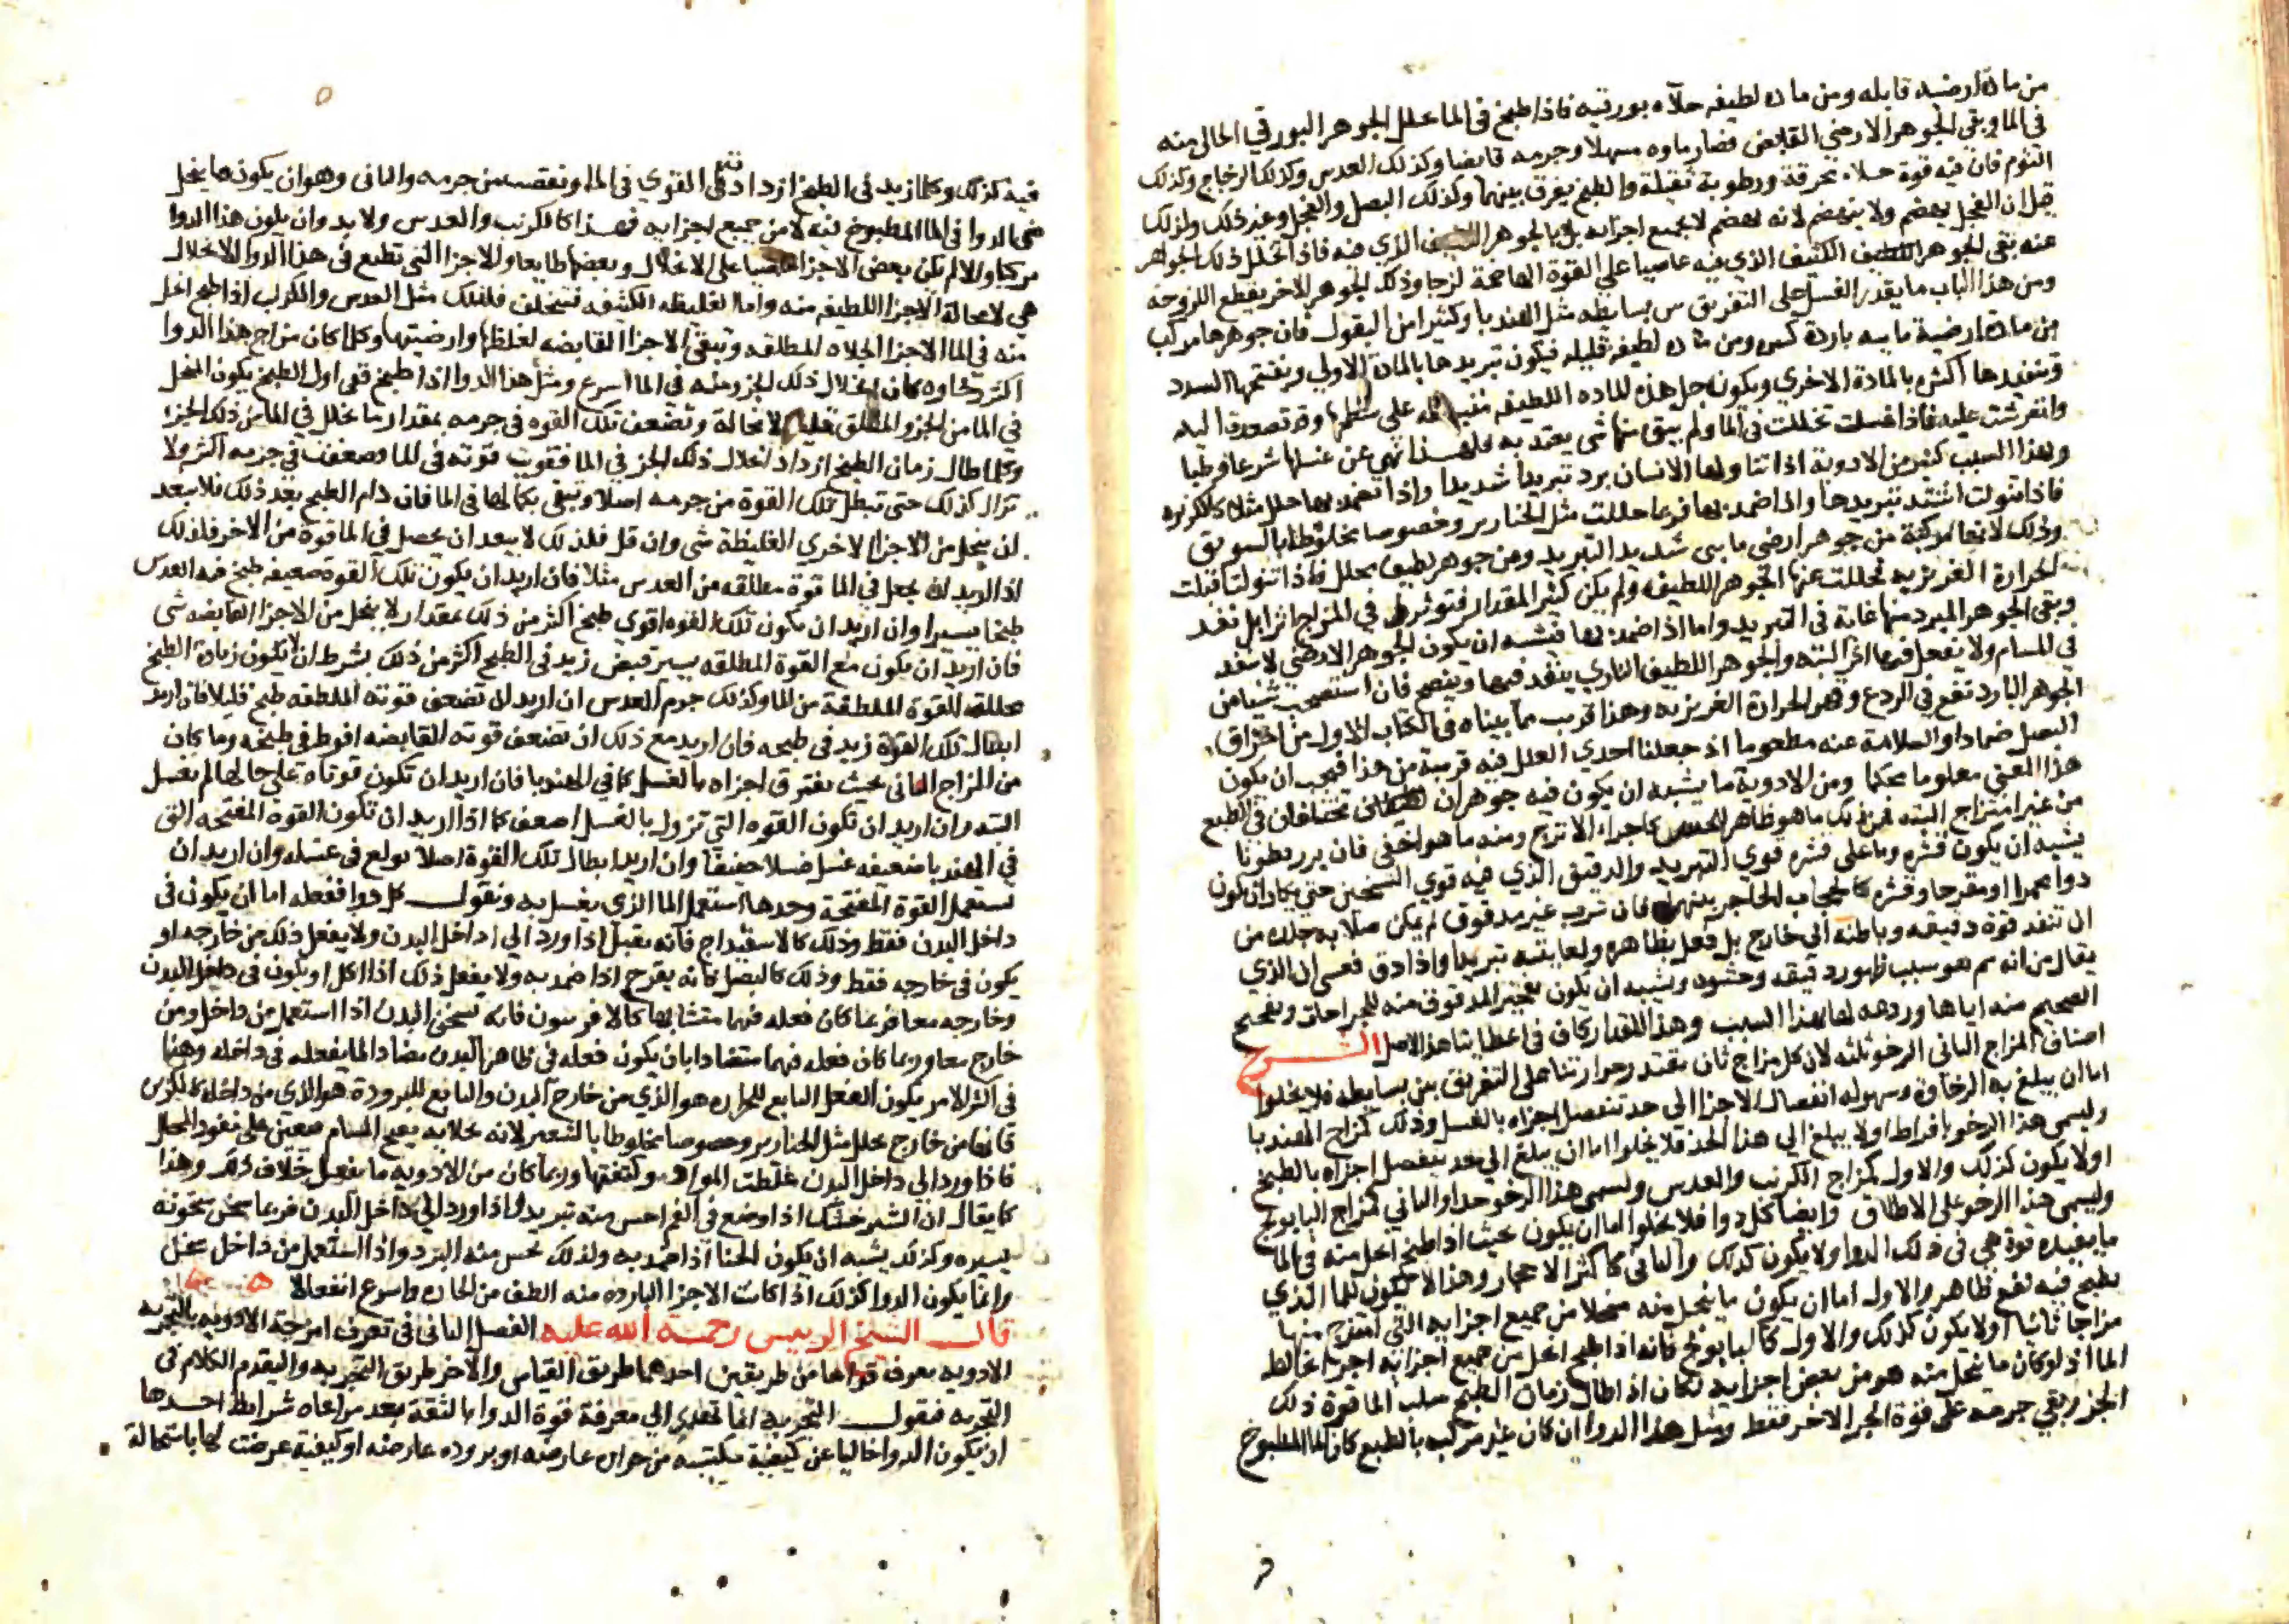 من مادة ارضية قابضه ومن مادة لطيفه جلاه بورقيه فاذا طبخ في الما تحلل الجوهر البورقي الجالي منه
في الما وبقي الجوهر الارضي القابض فصار ماوه مسهلا وجرمه قابضا وكذلك العدس وكذلك الدجاج وكذلك
الثوم فان فيه قوة جلاء محرقة ورطوبة ثقيلة والطبخ يفرق بينهما وكذلك البصل والفجل وغير ذلك ولذلك
قيل ان الفجل يهضم ولا ينهضم لانه يهضم لا بجميع اجزايه بل بالجوهر اللطيف الذي فيه فاذا تحلل ذلك الجوهر
عنه بقي الجوهر الكثيف الذي فيه عاصيا على القوة الهاضمة لزجا وذلك الجوهر الاخر يقطع اللزوجه
ومن هذا الباب ما يقدر الغسل على التفريق بين بسايطه مثل الهندبا وكثير من البقول فان جوهرها مركب
من مادة ارضية مايية باردة كثيره ومن مادة لطيفه قليله فيكون تبريدها بالمادة الاولي وتفتيحها السدد
وتنفيذها اكثره بالمادة الاخري ويكون جل هذه الماده اللطيفه منبسطه على سطحها وقد تصعدت اليه
وانفرشت عليه فاذا غسلت تحللت في الما ولم يبق منها شي يعتد به فلهذا نهي عن غسلها شرعا وطبا
ولهذا السبب كثير من الادوية اذا تناولها الانسان برد تبريدا شديدا واذا تضمد بها حلل مثل الكزبره
فاذا تنولت اشتد تبريدها واذا ضمد بها فربما حللت مثل الخنازير وخصوصا مخلوطا بالسويق
وذلك لانها مركبة من جوهر ارضي مايي شديد التبريد ومن جوهر لطيف محلل فاذا تنولت اقبلت
الحرارة الغريزيه فحللت عنها الجوهر اللطيف ولم يكن كثير المقدار فتوثر في المزاج اثرا بل نفد
وبقي الجوهر المبرد منها غاية في التبريد واما اذا ضمد بها فيشبه ان يكون الجوهر الارضي لا ينفد
في المسام ولا يفعل فيها اثرا البته والجوهر اللطيف الناري ينفد فيها وينضج فان استصحب شيا من
الجوهر البارد نفع في الردع وقهر الحرارة الغريزيه وهذا قريب مما بيناه في الكتاب الاول من احراق
البصل ضمادا والسلامة عنه مطعوما اذ جعلنا احدي العلل فيه قريبة من هذا فيجب ان يكون
هذا المعني معلوما محكما ومن الادوية ما يشبه ان يكون فيه جوهران مختلفان في الطبع
من غير امتزاج البته فمن ذلك ما هو ظاهر للحس كاجزاء الاترج ومنه ما هو اخفى فان بزر قطونا
يشبه ان يكون قشره وما على قشره قوي التبريد والدقيق الذي فيه قوي التسخين حتى يكاد ان يكون
دوا محمرا او مقرحا وقشره كالحجاب الحاجز بينهما فان شرب غير مدقوق لم يمكن صلابة جلده من
ان تنفد قوة دقيقه وباطنه الي خارج بل فعل بظاهره ولعابيته تبريدا واذا دق فعسى ان الذي
يقال من انه سم هو بسبب ظهور دقيقه وحشوه ويشبه ان يكون تفجير المدقوق منه للجراحات وتفجيح
الصحيح منه اياها وردعه لها لهذا السبب وهذا المقدار كاف في اعطايتنا هذا الاصل الشرح
اصناف المزاج الثاني الرخو ثلثه لان كل مزاج ثان يقتدر حرارتنا على التفريق بين بسايطه فلا يخلوا
اما ان يبلغ به الرخاوة وسهولة انفصال الاجزا الى حد تنفصل اجزاه بالغسل وذلك كمزاج الهندبا
وليسمى هذا الرخو بافراط او لا يبلغ الي هذا الحد فلا يخلوا اما ان يبلغ الي حد ينفصل اجزاه بالطبخ
اولا يكون كذلك والاول كمزاج الكرنب والعدس وليسمى هذا الرخو جدا والثاني كمزاج البابونج
وليسمى هذا الرخو على الاطلاق وايضا كل دوا فلا يخلوا اما ان يكون بحيث اذا طبخ انحل منه في الما
ما يفيده قوة هي في ذلك الدوا ولا يكون كذلك والثاني كاكثر الاحجار وهذا لا يكون للما الذي
يطبخ فيه نفع ظاهر والاول اما ان يكون ما ينحل منه منحلا من جميع اجزايه التي امتزج منها
مزاجا ثانيا اولا يكون كذلك والاول كالبابونج فانه اذا طبخ انحل من جميع اجزايه اجزا تخالط
الما اذ لو كان ما ينحل منه هو من بعض اجزايه لكان اذا طال زمان الطبخ سلب الما قوة ذلك
الجز وبقي جرمه على قوة الجز الاخر فقط ومثل هذا الدوا ان كان غير مركب بالطبع كان الما المطبوخ
فيه كذلك وكلما زيد في الطبخ ازدادت القوي في الما ونقصت من جرمه والثاني وهو ان يكون ما ينحل
من الدوا في الما المطبوخ فيه لا من جميع اجزايه فهذا كالكرنب والعدس ولا بد وان يكون هذا الدوا
مركبا والا لم يكن بعض الاجزا عاصيا على الانحلال وبعضها طايعا والاجزا التي تطيع في هذا الدوا للانحلال
هي لا محالة الاجزا اللطيفه منه واما الغليظه الكثيفه فتتخلف فلذلك مثل العدس والكرنب اذا طبخ انحل
منه في الما الاجزا الجلاه المطلقه وتبقى الاجزا القابضه لغلظها وارضيتها وكلما كان مزاج هذا الدوا
اكثر رخاوه كان انحلال ذلك الجز ومنه في الما اسرع ومثل هذا الدوا اذا طبخ ففي اول الطبخ يكون المنحل
في الما من الجزو المطلق قليلا لا محالة وتضعف تلك القوه في جرمه بمقدار ما تحلل في الما من ذلك الجزا
وكلما طال زمان الطبخ ازداد انحلال ذلك الجز في الما فقويت قوته في الما وضعفت في جرمه اكثر ولا
تزال كذلك حتى تبطل تلك القوة من جرمه اصلا وتبقى بكمالها في الما فان دام الطبخ بعد ذلك فلا يبعد
ان ينحل من الاجزا الاخري الغليظة شي وان قل فلذلك لا يبعد ان يحصل في الما قوة من الاخر فلذلك
اذا اريد ان يجعل في الما قوة مطلقه من العدس مثلا فان اريد ان يكون تلك القوة ضعيفه طبخ فيه العدس
طبخا يسيرا وان اريد ان يكون تلك القوه اقوي طبخ اكثر من ذلك بمقدار لا ينحل من الاجزا القابضه شي
فان اريد ان يكون مع القوة المطلقه يسير قبض زيد في الطبخ اكثر من ذلك بشرط ان لا يكون زيادة الطبخ
محللة للقوة المطلقة من الما وكذلك جرم العدس ان اريد ان تضعف قوته المطلقه طبخ قليلا فان اريد
ابطال تلك القوة زيد في طبخه فان اريد مع ذلك ان تضعف قوته القابضه افرط في طبخه وما كان
من المزاج الثاني بحيث يفترق اجزاه بالغسل كما في الهندبا فان اريد ان تكون قوتاه على حالها لم يغسل
البته وان اريد ان تكون القوه التي تزول بالغسل اضعف كما اذا اريد ان تكون القوة المفتحه التي
في الهندبا ضعيفه غسل غسلا خفيفا وان اريد ابطال تلك القوة اصلا بولغ في غسله وان اريد ان
يستعمل القوة المفتحة وحدها استعمل الما الذي يغسل به ونقول كل دوا ففعله اما ان يكون في
داخل البدن فقط وذلك كالاسفيداج فانه يقتل اذا ورد الي داخل البدن ولا يفعل ذلك من خارجه او
يكون في خارجه فقط وذلك كالبصل فانه يقرح اذا ضمد به ولا يفعل ذلك اذا اكل او يكون في داخل البدن
وخارجه معا فربما كان فعله فيهما متشابها كالافربيون فانه يسخن البدن اذا استعمل من داخل ومن
خارج معا وربما كان فعله فيهما متضادا بان يكون فعله في ظاهر البدن مضادا لما يفعله في داخله وهنا
في اكثر الامر يكون الفعل التابع للحراره هو الذي من خارج البدن والتابع للبرودة هو الذي من داخله كالكزبره
فانها من خارج تحلل مثل الخنازير وخصوصا مخلوطا بالشعير لانه بجلايه يفتح المسام فيعين على نفود المحلل
فاذا ورد الي داخل البدن غلظت المواد وكثفتها وربما كان من الادويه ما يفعل خلاف ذلك وهذا
كما يقال ان الشيرخشك اذا وضع في الفم احس منه تبريد واذا ورد الي داخل البدن فربما سخن سخونه
يسيره وكذلك يشبه ان يكون الحنا اذا ضمد به ولذلك يحس منه البرد واذا استعمل من داخل سخن
وانما يكون الدوا كذلك اذا كانت الاجزا البارده منه الطف من الحاره واسرع انفعالا
قال الشيخ الرييس رحمة الله عليه الفصل الثاني في تعرف امزجة الادويه بالتجربه
الادويه تعرف قواها من طريقين احدهما طريق القياس والاخر طريق التجربه ولنقدم الكلام في
التجربه فنقول التجربه انما تهدي الي معرفة قوة الدوا بالثقة بعد مراعاه شرايط احدها
ان يكون الدوا خاليا عن كيفية مكتسبه من حرارة عارضه او بروده عارضه او كيفية عرضت لها باستحالة